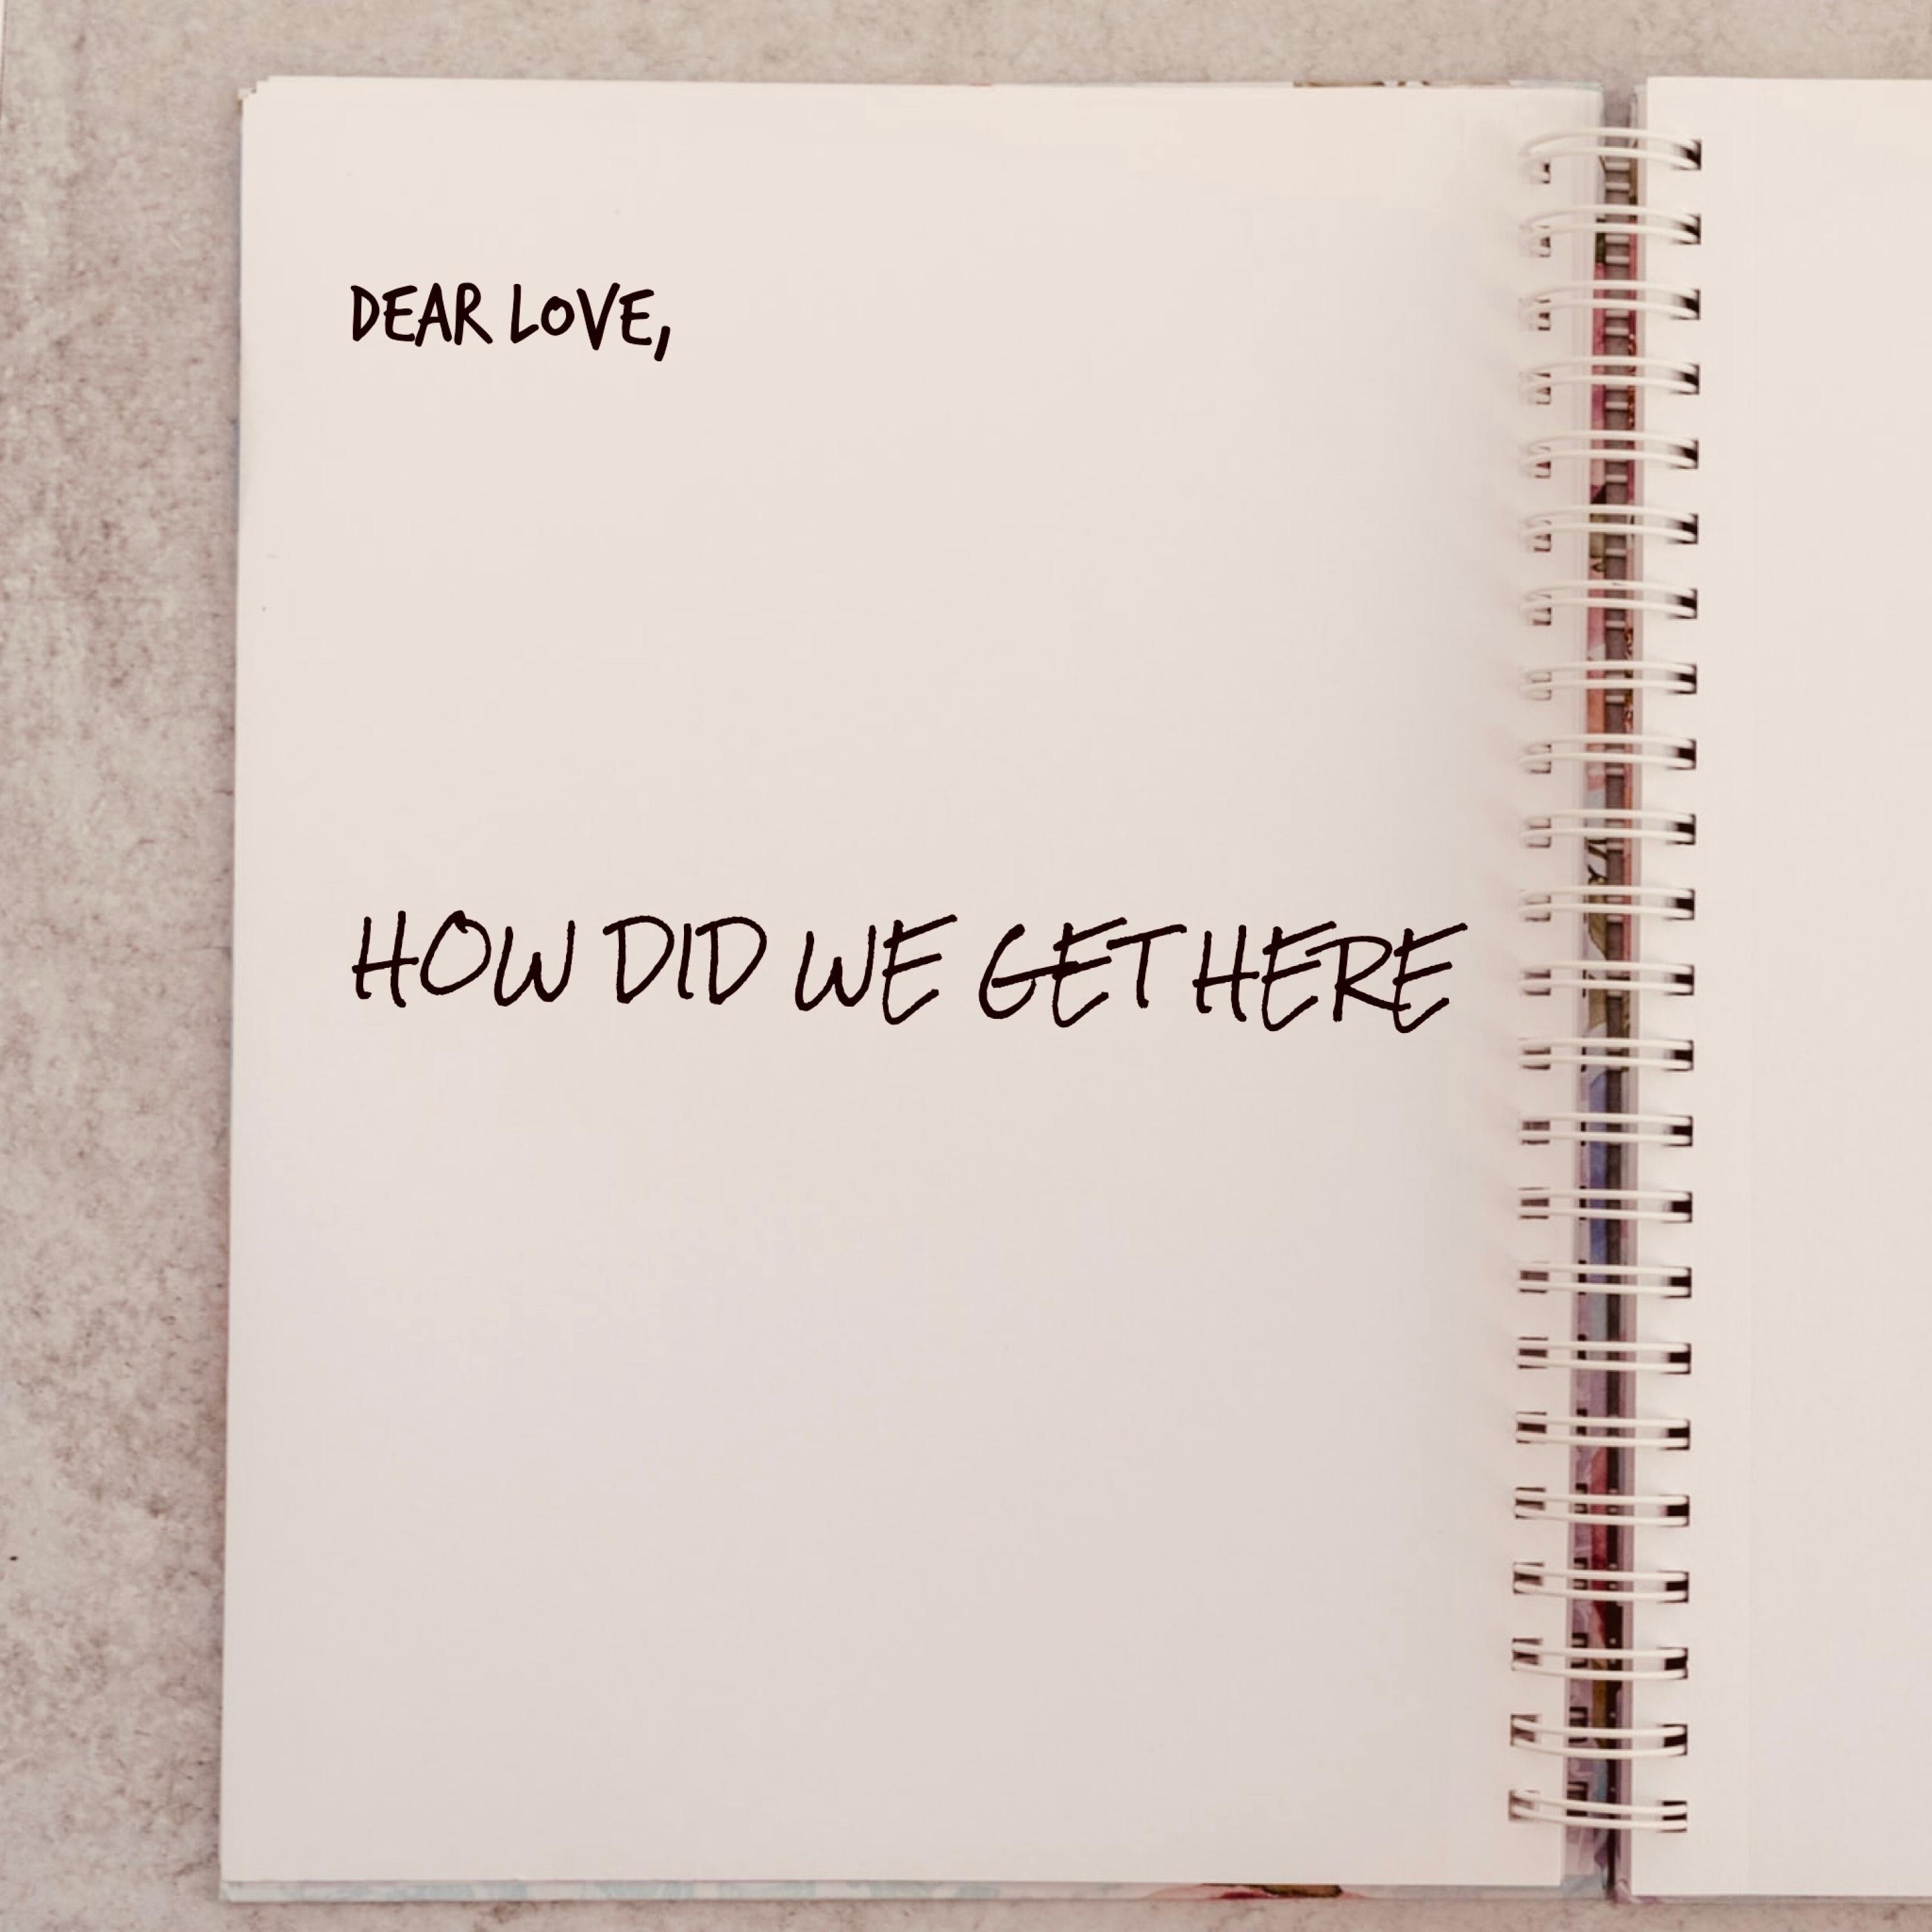 DEAR LOVE,
HOW DID WE GET HERE